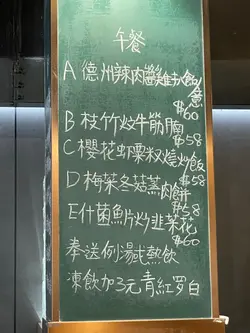 午餐
A 德州辣肉醬雞扒飯/意
$60
B 枝竹炆牛筋腩
$58
C 櫻花虾粟米叉燒炒飯
$58
D 梅菜冬菇蒸肉餅
$58
E 什菌魚片炒韮菜花
$60
奉送例湯或熱飲
凍飲加3元青紅罗白